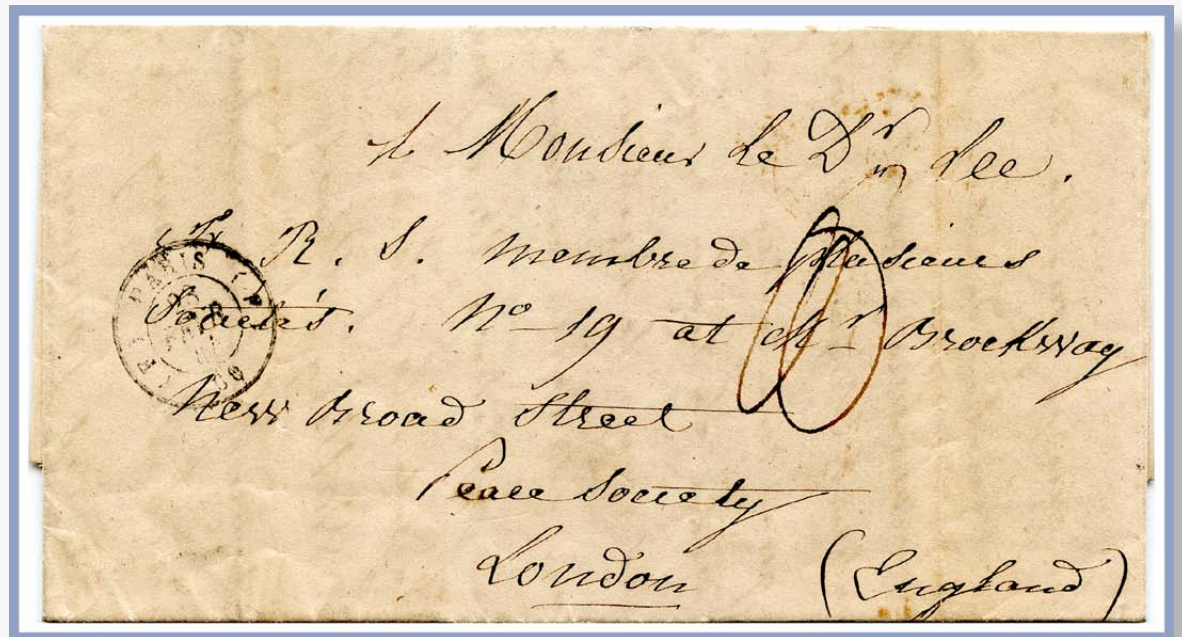 A Monsieur Le Dr Lee.
F. R. S. membre de plusieurs
Societés. No 19 at Mr Brockway
New Broad Street
Peace Society
London (England)
PARIS